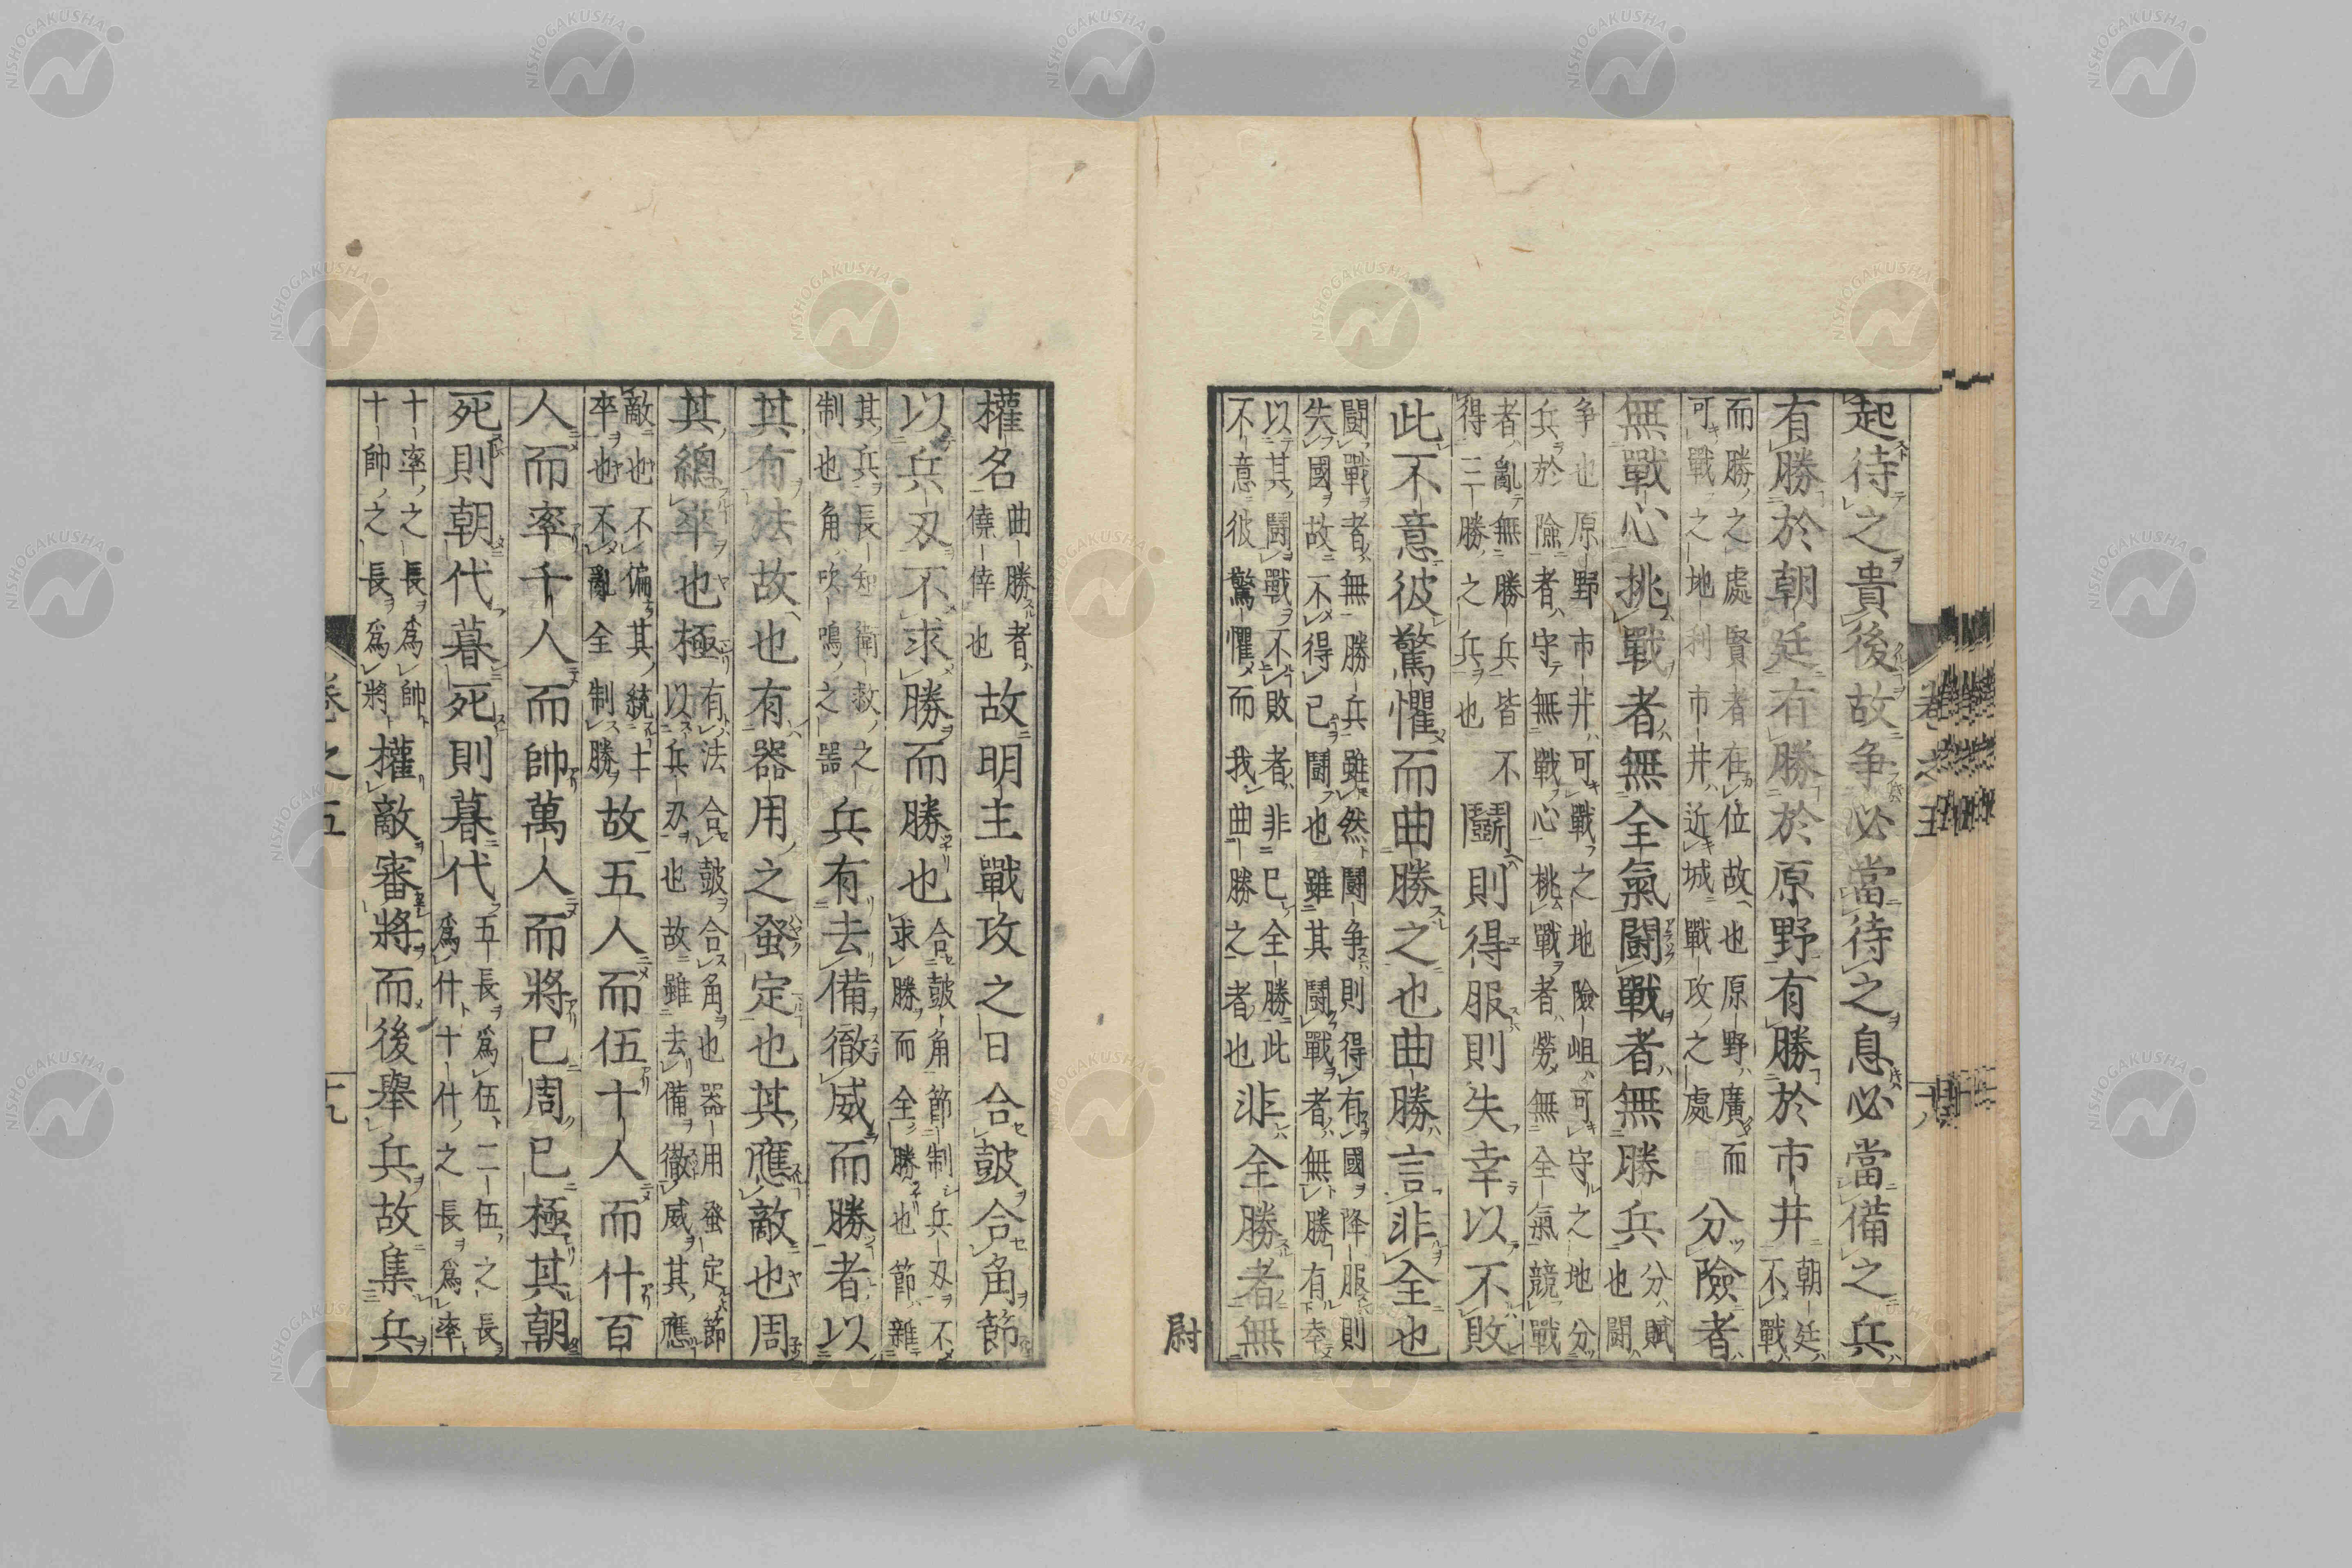 起待之貴後故爭必當待之息必當備之兵
有勝於朝廷有勝於原野有勝於市井朝廷不戰
而勝之處賢者在位故也原野廣而
可戰之地利市井近城戰攻之處分險者
無戰心挑戰者無全氣鬪戰者無勝兵分賦也鬪
争也原野市井可戰之地險岨可守之地分
兵於險者守無戰心挑戰者勞無全氣競戰
者亂無勝兵皆不
得三勝之兵也鬭則得服則失幸以不敗
此不意彼驚懼而曲勝之也曲勝言非全也
鬪戰者無勝兵雖然鬪争則得有國降服則
失國故不得已鬪也雖其鬪戰者無勝有幸
以其鬪戰不敗者非已全勝此
不意彼驚懼而我曲勝之者也非全勝者無
尉
權名曲勝者僥倖也故明主戰攻之日合鼓合角節
以兵刃不求勝而勝也合鼓角節制兵刃不
求勝而全勝也節雜
其兵長知衛救之
制也角吹鳴之器兵有去備徹威而勝者以
其有法故也有器用之蚤定也其應敵也周
其總率也極有法合鼓合角也器用蚤定節
以兵刃也故雖去備徹威其應
敵也不偏其統士
卒也不亂全制勝故五人而伍十人而什百
人而率千人而帥萬人而將已周已極其朝
死則朝代暮死則暮代五長爲伍二伍之長
爲什十什之長爲率
十率之長爲帥
十帥之長爲將權敵審將而後舉兵故集兵
卷之五
十九
NISHOGAKUSHA